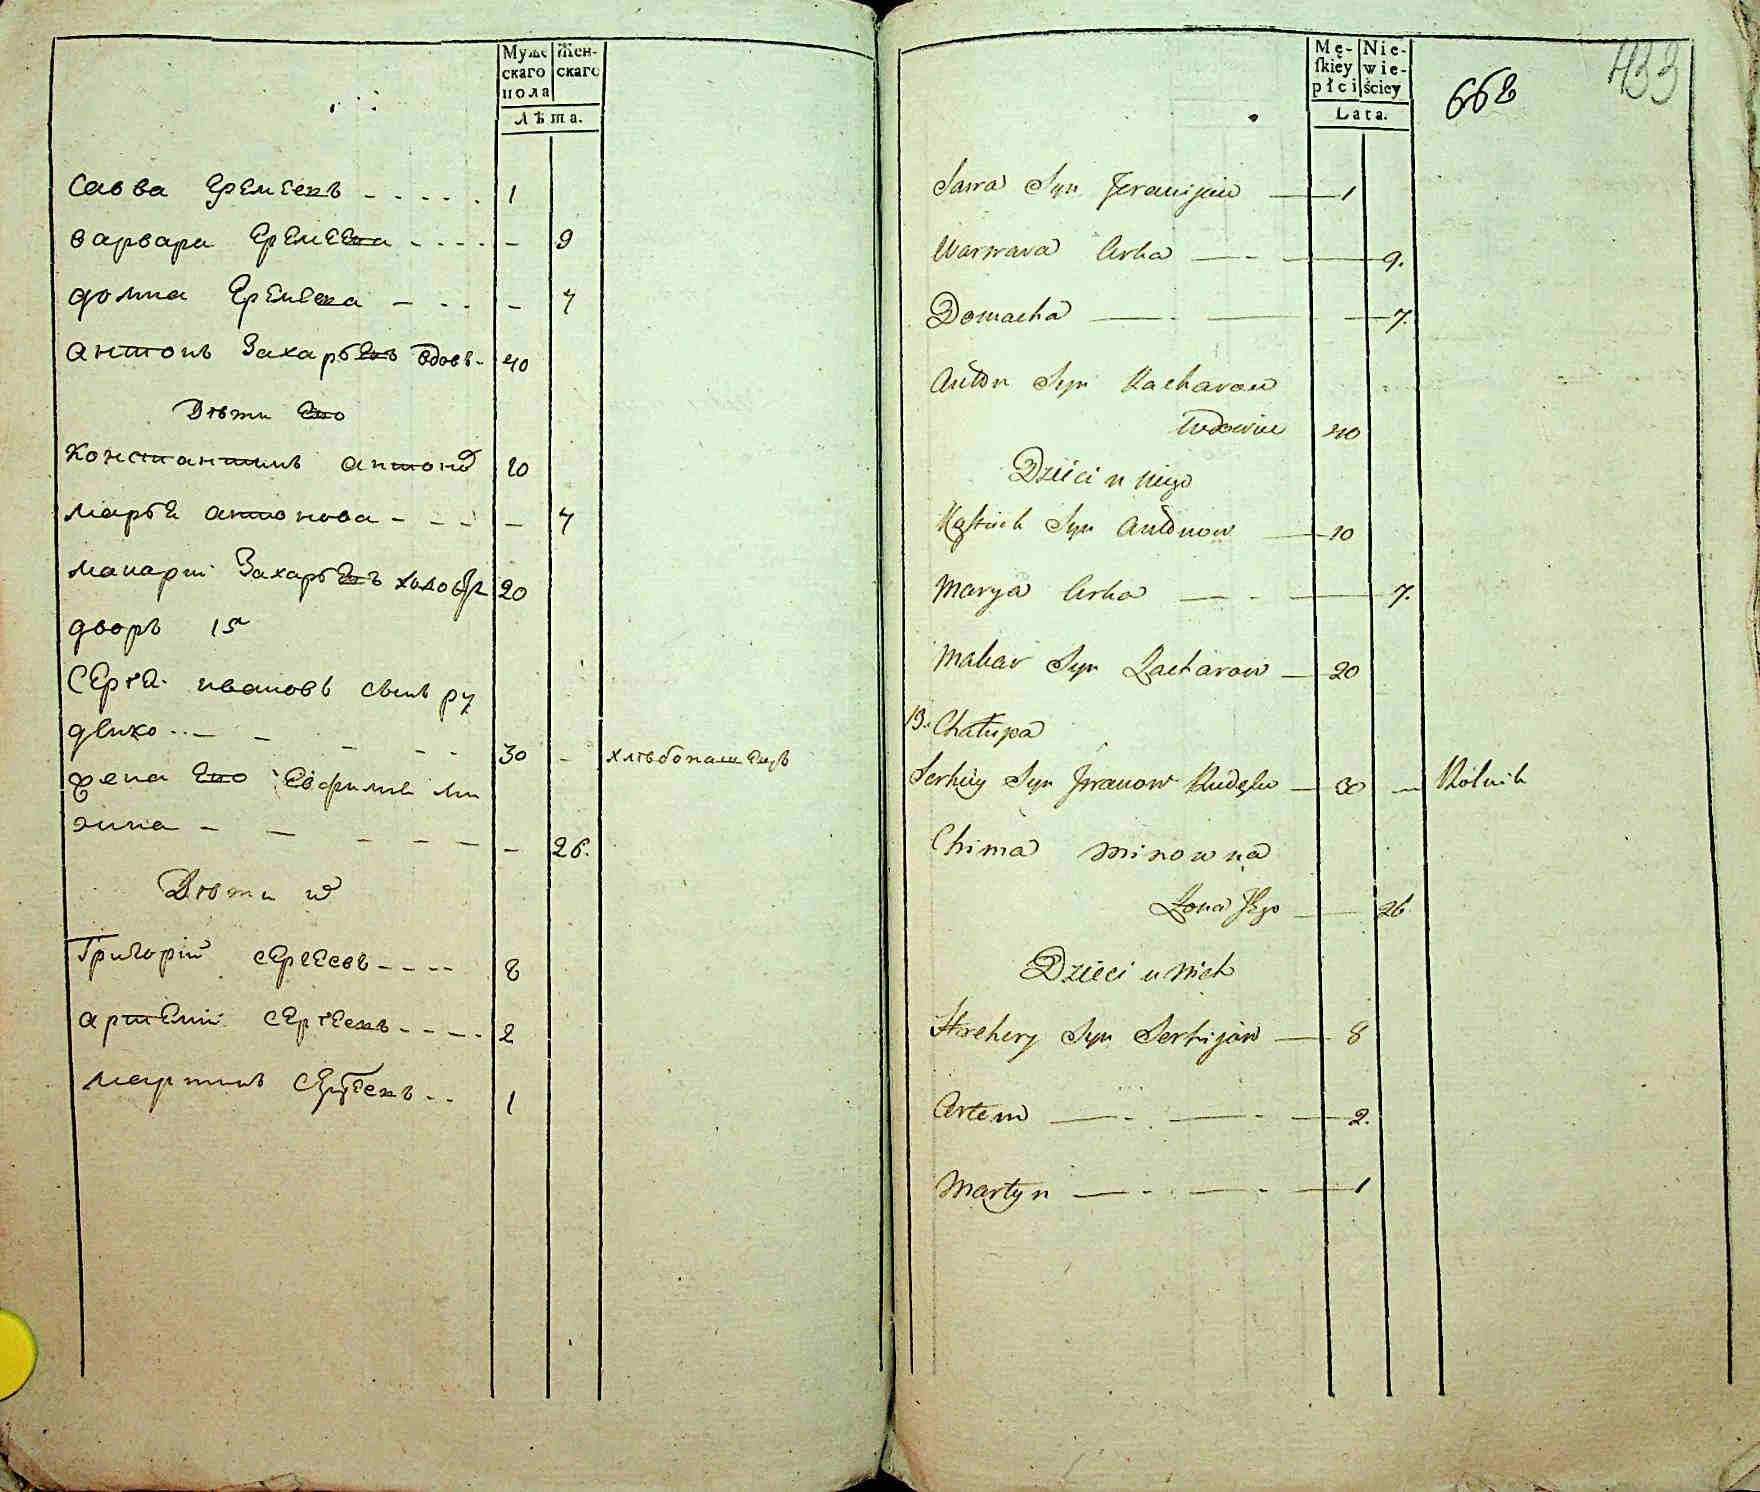 Муже Жен-
скаго скаго
пола
Лѣта.
Савва Еремеевъ - - - - - 1
варвара Еремеева - - - - - 9
домна Еремеева - - - - 7
антонъ Захарьевъ вдовъ - 40
Дѣти Его
Константинъ антоно 10
марья антонова - - - - 7
макарий Захарьевъ 20
дворъ 15
Сергѣй ивановъ сынъ ру
двико - - - - - 30 - хлѣбопашецъ
жена Его Евфимия ми
нина - - - - - - 26.
Дѣти их
Григорій сергеевъ - - - - 8
артемий сергеевъ - - - - 2
мартинъ сергеевъ - - 1
Mę- Nie-
ſkiey wie-
płci ściey
Lata.
662
433
Sawa Syn Jeremijew — 1
Warwara Corka — - — 9.
Domacha — - — — 7.
Anton Syn Zacharow
Wdowiec 40
Dzieci u niego
Kostiuk Syn Antonow — 10
Marya Corka — - — 7.
Makar Syn Zacharow — 20
15. Chałupa
Serhiy Syn Jwanow Rudęko — 30 — Rolnik
Chima Minowna
Zona Jego — 26
Dzieci u Nich
Hrehory Syn Serhijow — 8
Artem — - — - — 2.
Martyn — - — - — 1